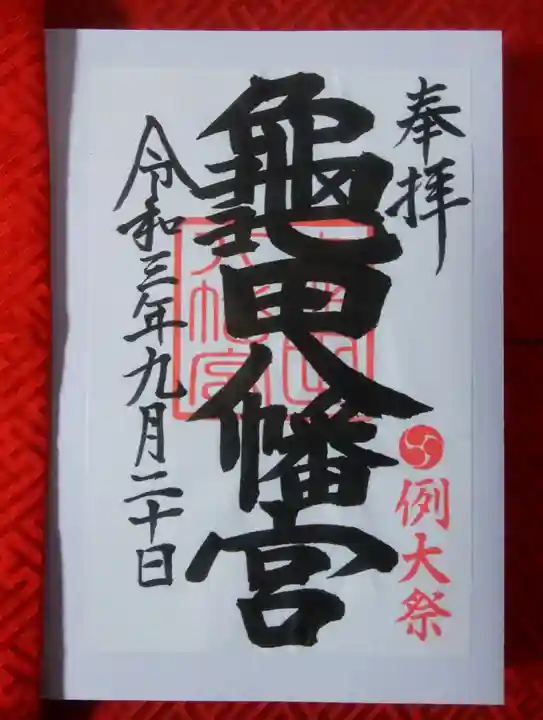 奉拝
例大祭
龜田八幡宮
令和三年九月二十日